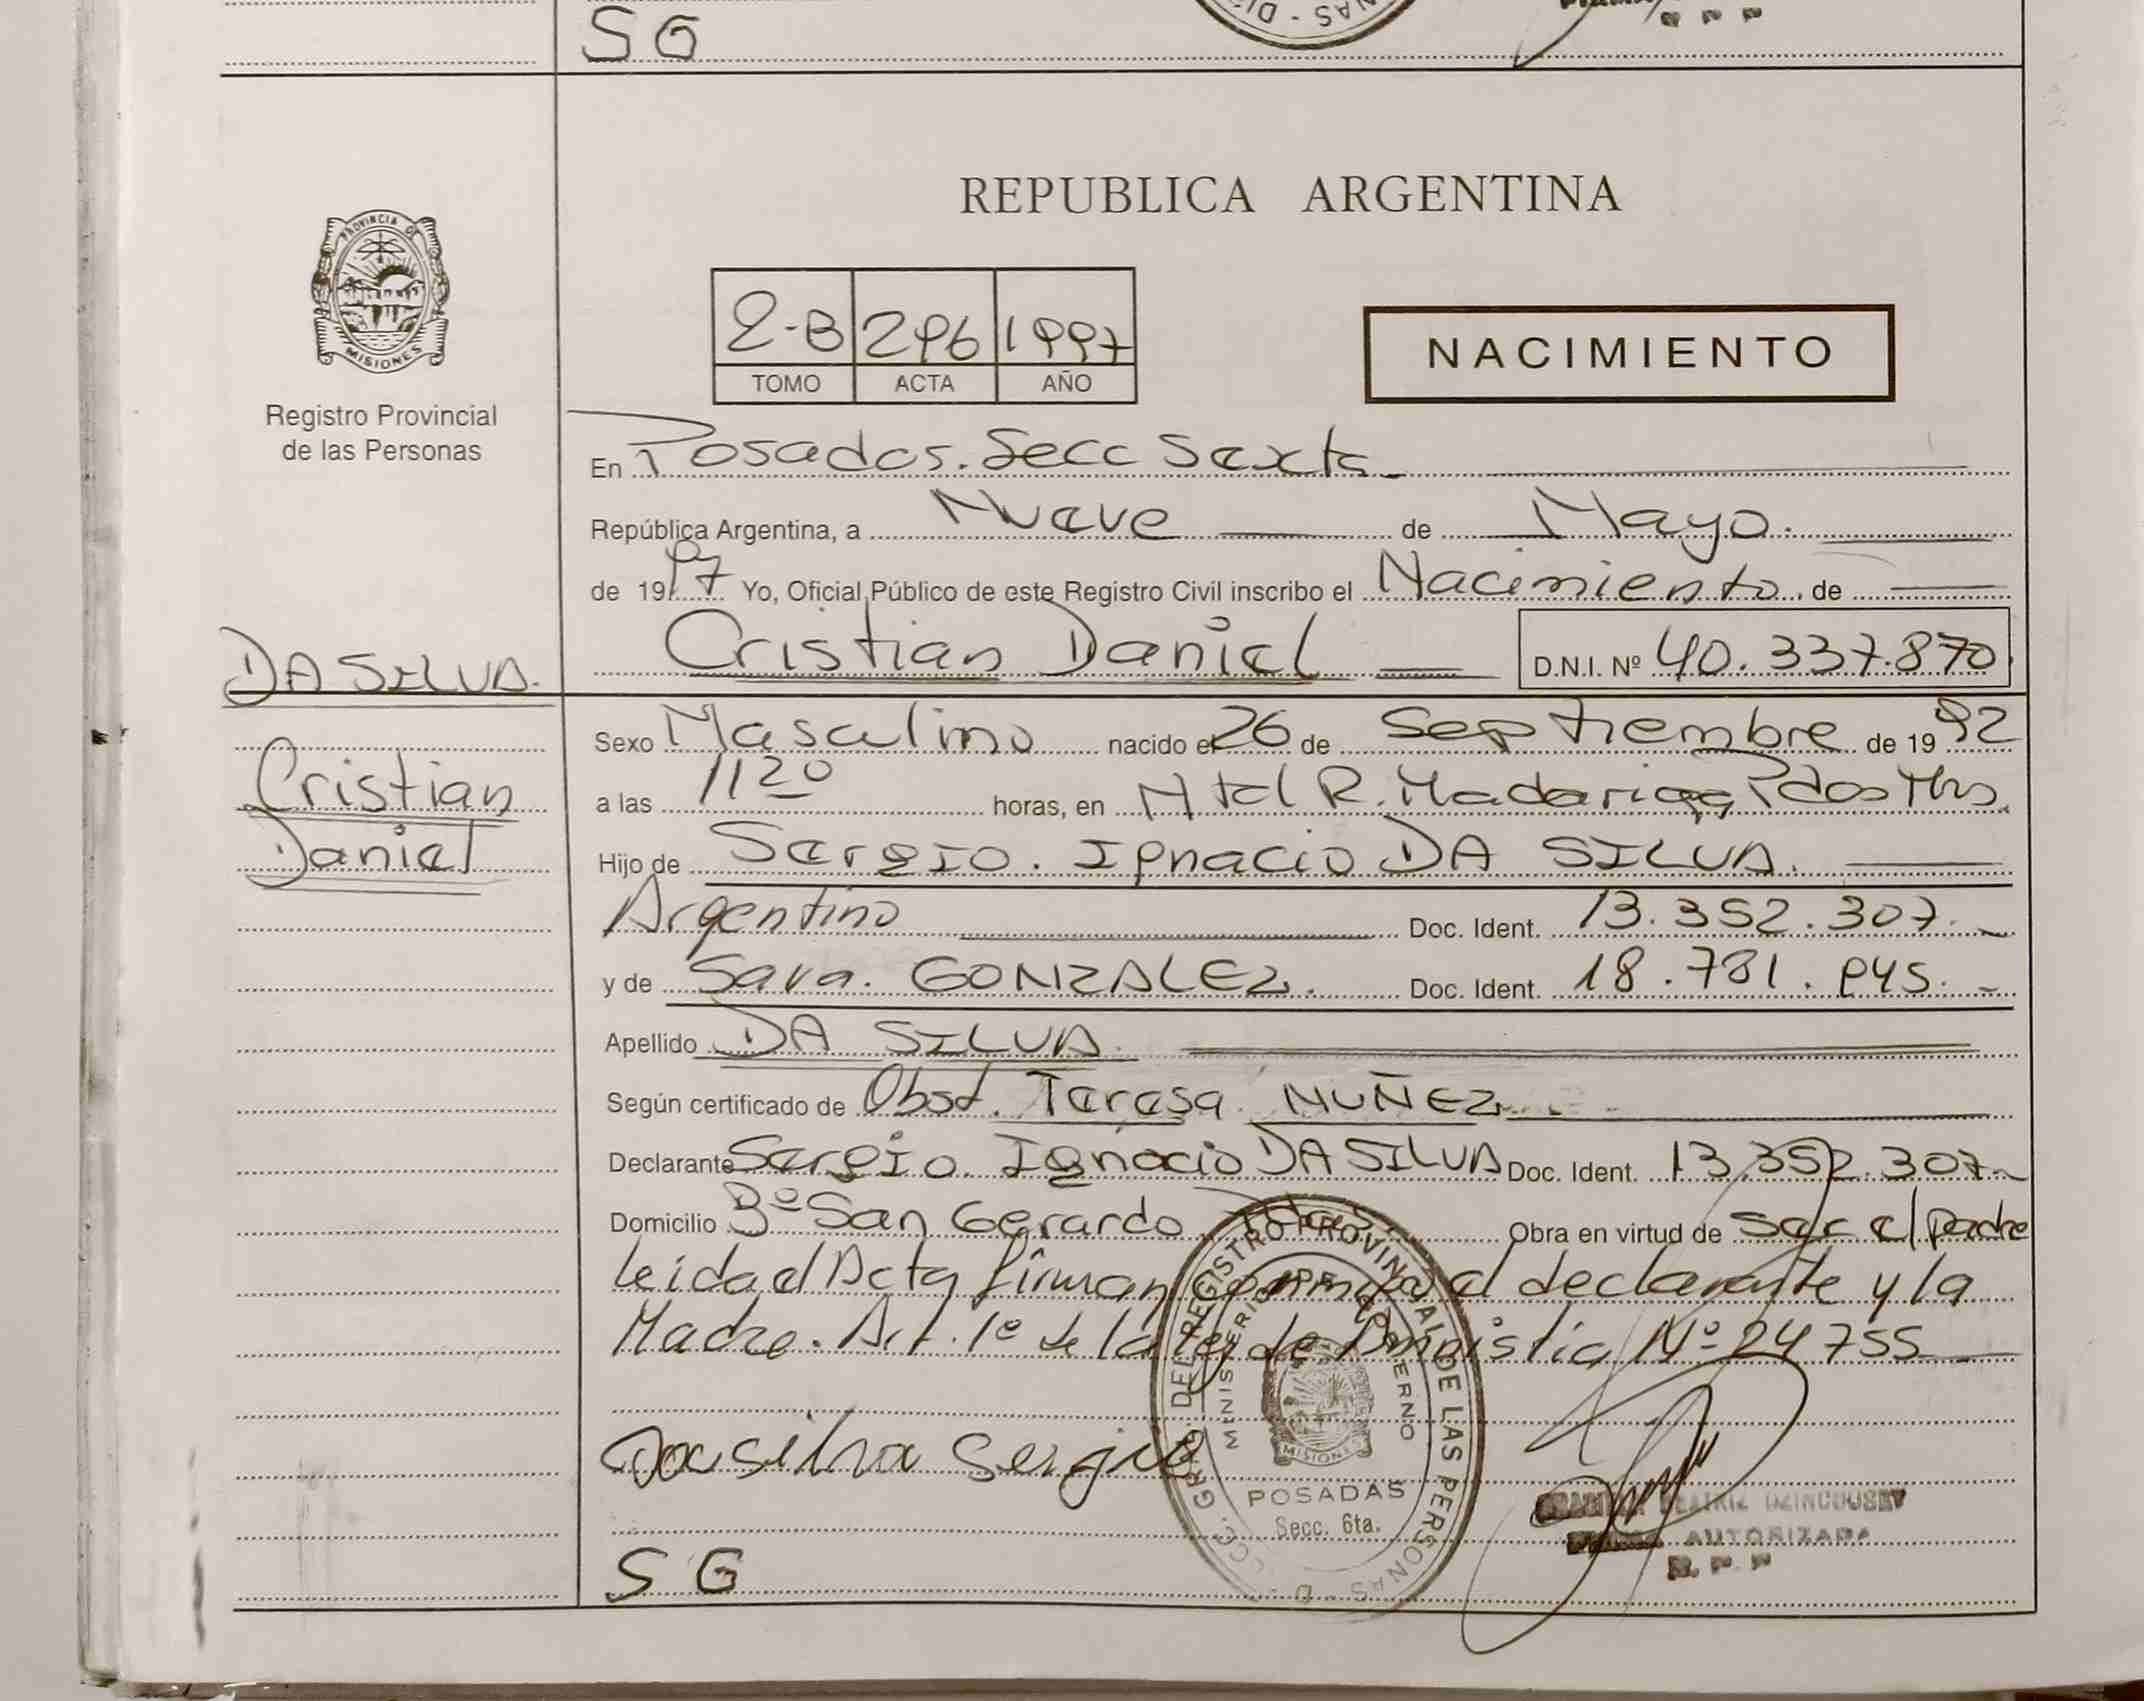 SG
NAS - DI
REPUBLICA ARGENTINA
PROVINCIA DE
MISIONES
Registro Provincial
de las Personas
2-B 296 1997
TOMO ACTA AÑO
NACIMIENTO
En Posadas. Secc Sexta
República Argentina, a Nueve de Mayo.
de 1997 Yo, Oficial Público de este Registro Civil inscribo el Nacimiento, de
Cristian Daniel D.N.I. Nº 40.337.870
DA SILVA.
Cristian
Daniel
Sexo Masculino nacido el 26 de Septiembre de 1992
a las 11 20 horas, en Mtd R. Madariaga Pdas Mns.
Hijo de Sergio. Ignacio DA SILVA.
Argentino Doc. Ident. 13.352.307.
y de Sara. GONZALEZ. Doc. Ident. 18.781.945.
Apellido DA SILVA.
Según certificado de Obst. Teresa NUÑEZ
Declarante Sergio. Ignacio DA SILVA Doc. Ident. 13.352.307
Domicilio Bº San Gerardo Pdas. Obra en virtud de ser el padre
Leida el Acta firman conmigo el declarante y la
Madre. Art. 1º de la ley de Amnistia Nº 24755
Da silva Sergio
SG
DEL REGISTRO PROVINCIAL DE LAS PERSONAS
MINISTERIO DE GOBIERNO
MISIONES
POSADAS
Secc. 6ta.
BEATRIZ
AUTORIZADA
R. P. P